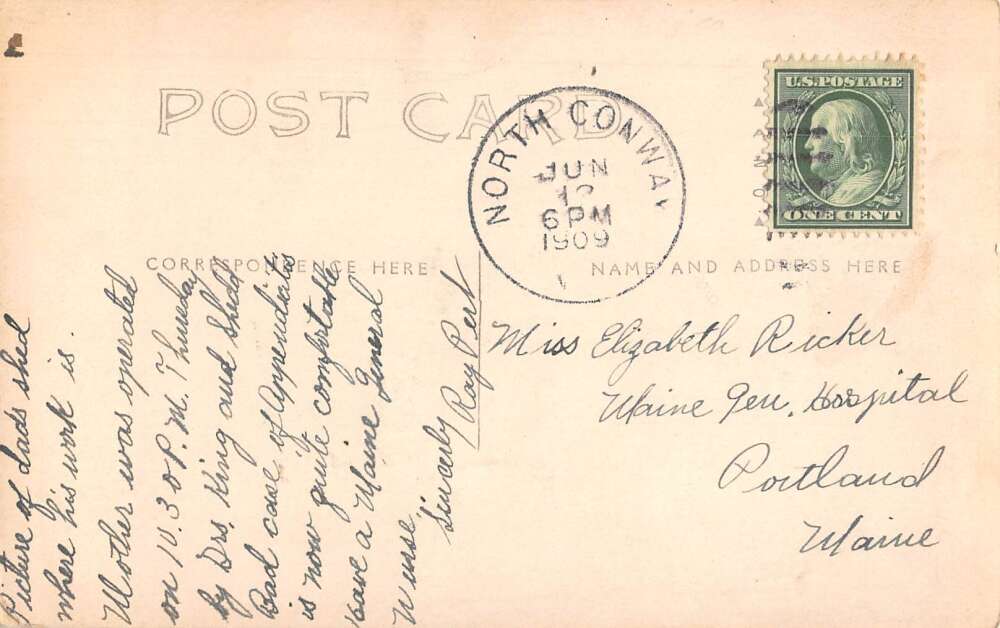 POST CARD
NORTH CONWAY
JUN
12
6 PM
1909
U.S. POSTAGE
ONE CENT
CORRESPONDENCE HERE
NAME AND ADDRESS HERE
Picture of dads shed
where his work is.
Mother was operated
on 10.30 P.M. Thursday
by Drs. King and Shedd
Bad case of Appendicitis
is now quite comfortable
Have a Maine General
Nurse.
Sincerly
Ray
Miss Elizabeth Ricker
Maine Gen. Hospital
Portland
Maine